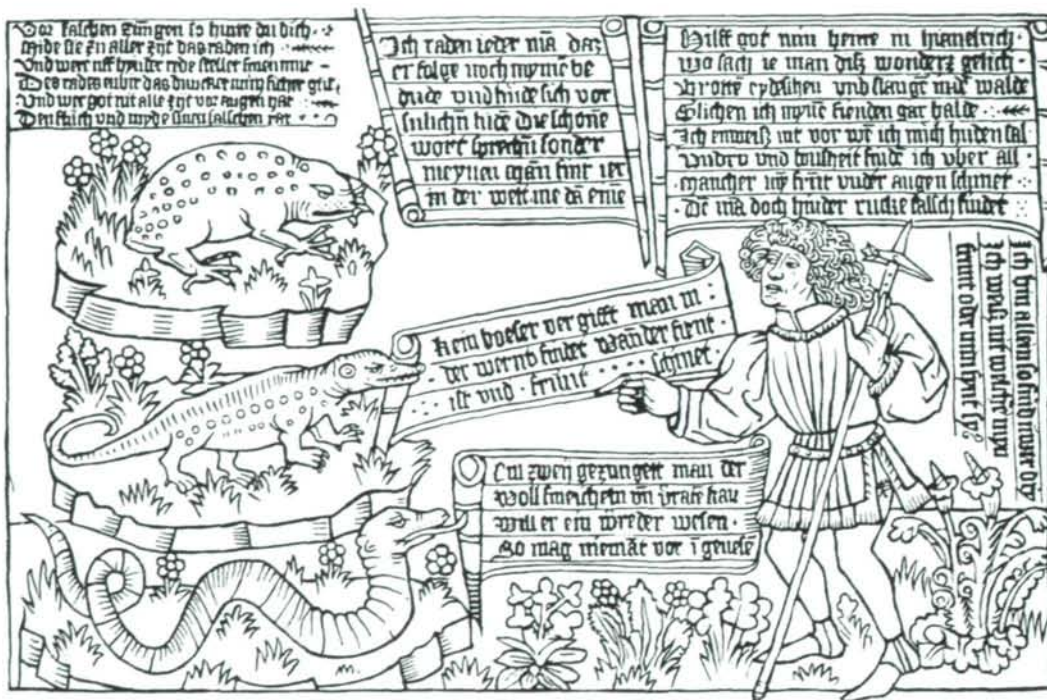 Vor falschen zungen so hutte du dich
mide sie zu aller zyt das raden ich
Und wer uff hynder rede stellet sinen mut
Und wer got nit alle zyt vor augen hat
Den fluch und myde sinen falschen rat
Ich raden ieder mā daz
er folge noch mynē be
dude und hude sich vor
die schone
wort sprechn sonder
meynen
in der welt me dā eine
Hilff got min herre in himelrich
wo sach ie man disz wonderz gelich
Krotē eydeschen und slangē mit walde
Glichen ich mynē fienden gar balde
Ich enweisz nit vor wē ich mich huden sal
Undru und bousheit finde ich uber all
mancher mȳ frūt under augen schinet
Dē mā doch hinder rucke falsch findet
Ich bin allein so sind uwer dry
Ich weisz nit welche in pu
frunt oder myn fynt sy
Kein boeser vergifft man in
der wernt findet wan der fient
ist und frunt schinet
Ein zwey gezungett man der
woll smeicheln
will er ein wesen
So mag niemāt vor ī genesē